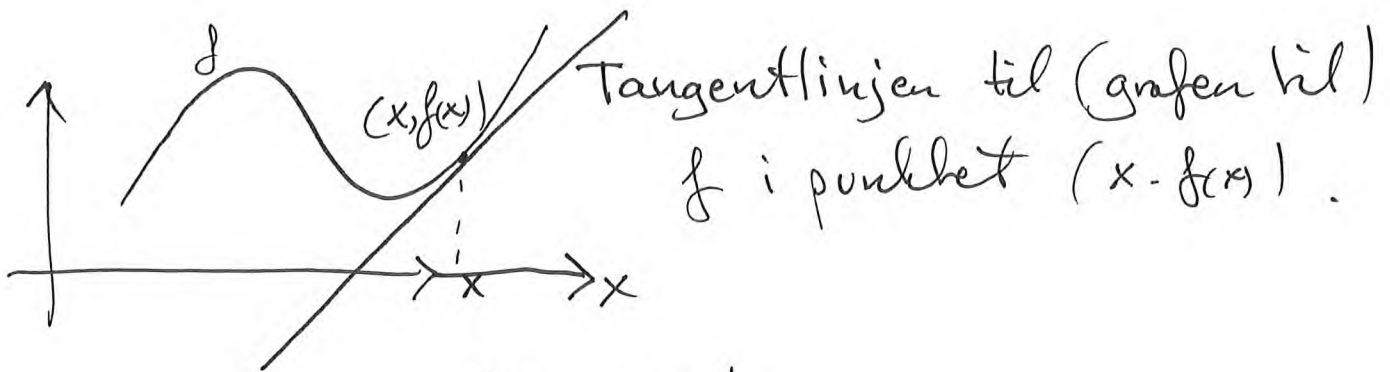 f
(x, f(x))
Tangentlinjen til (grafen til)
f i punktet (x. f(x)).
x
x